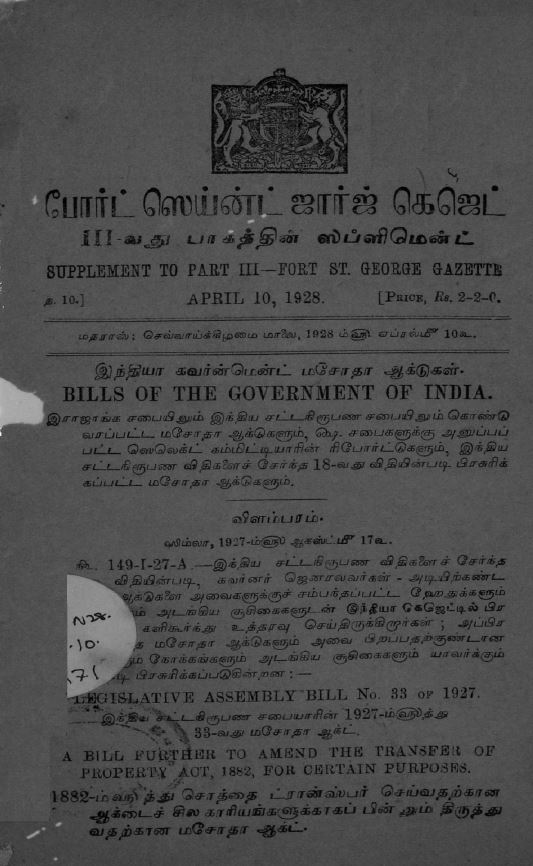 போர்ட் ஸெய்ன்ட் ஜார்ஜ் கெஜெட்
III-வது பாகத்தின் ஸப்ளிமென்ட்
SUPPLEMENT TO PART III—FORT ST. GEORGE GAZETTE
த. 10.] APRIL 10, 1928. [PRICE, Rs. 2-2-0.
மதராஸ்: செவ்வாய்க்கிழமை மாலை, 1928 ம்௵ ஏப்ரல்௴ 10௳.
இந்தியா கவர்ன்மென்ட் மசோதா ஆக்டுகள்.
BILLS OF THE GOVERNMENT OF INDIA.
இராஜாங்க சபையிலும் இந்திய சட்டநிரூபண சபையிலும் கொண்டு
வரப்பட்ட மசோதா ஆக்டுகளும், ௸ சபைகளுக்கு அனுப்பப்
பட்ட ஸெலெக்ட் கம்மிட்டியாரின் ரிபோர்ட்டுகளும், இந்திய
சட்டநிரூபண விதிகளைச் சேர்ந்த 18-வது விதியின்படி பிரசுரிக்
கப்பட்ட மசோதா ஆக்டுகளும்.
விளம்பரம்.
ஸிம்லா, 1927-ம்௵ ஆகஸ்ட்௴ 17௳.
149-I-27-A.—இந்திய சட்டநிரூபண விதிகளைச் சேர்ந்த
விதியின்படி, கவர்னர் ஜெனரலவர்கள் - அடியிற்கண்ட
ஆக்டுகளை அவைகளுக்குச் சம்பந்தப்பட்ட ஹேதுக்களும்
அடங்கிய குறிகைகளுடன் இந்தியா கெஜெட்டில் பிர
உத்தரவு செய்திருக்கிறார்கள்; அப்பிர
மசோதா ஆக்டுகளும் அவை பிறப்பதற்குண்டான
நோக்கங்களும் அடங்கிய குறிகைகளும் யாவர்க்கும்
பிரசுரிக்கப்படுகின்றன:—
LEGISLATIVE ASSEMBLY BILL No. 33 OF 1927.
இந்திய சட்டநிரூபண சபையாரின் 1927-ம்௵த்து
33-வது மசோதா ஆக்ட்.
A BILL FURTHER TO AMEND THE TRANSFER OF
PROPERTY ACT, 1882, FOR CERTAIN PURPOSES.
1882-ம்௵த்து சொத்தை ட்ரான்ஸ்பர் செய்வதற்கான
ஆக்டைச் சில காரியங்களுக்காகப் பின்னும் திருத்து
வதற்கான மசோதா ஆக்ட்.
N28
.10
171